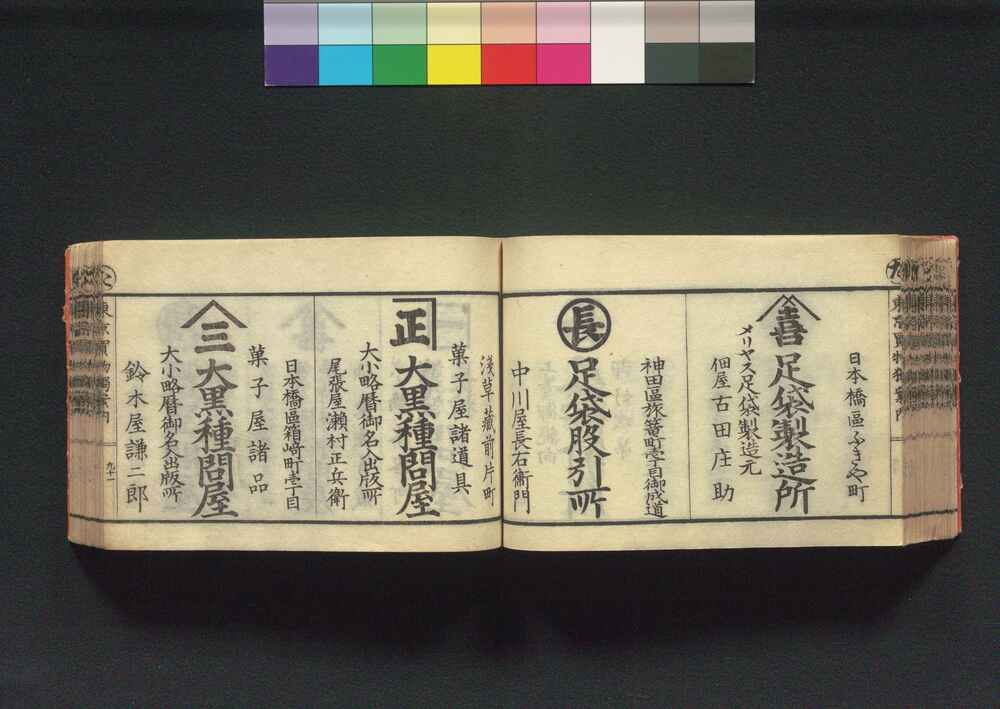 日本橋區ふきや町
喜
足袋製造所
メリヤス足袋製造元
佃屋古田庄助
神田區旅籠町壱丁目御成道
長
足袋股引所
中川屋長右衛門
浅草藏前片町
菓子屋諸道具
正
大黒種問屋
大小略暦御名入出版所
尾張屋瀬村正兵衛
日本橋區箱﨑町壱丁目
菓子屋諸品
三
大黒種問屋
大小略暦御名入出版所
鈴木屋謙二郎
東京買物獨案内
九十二